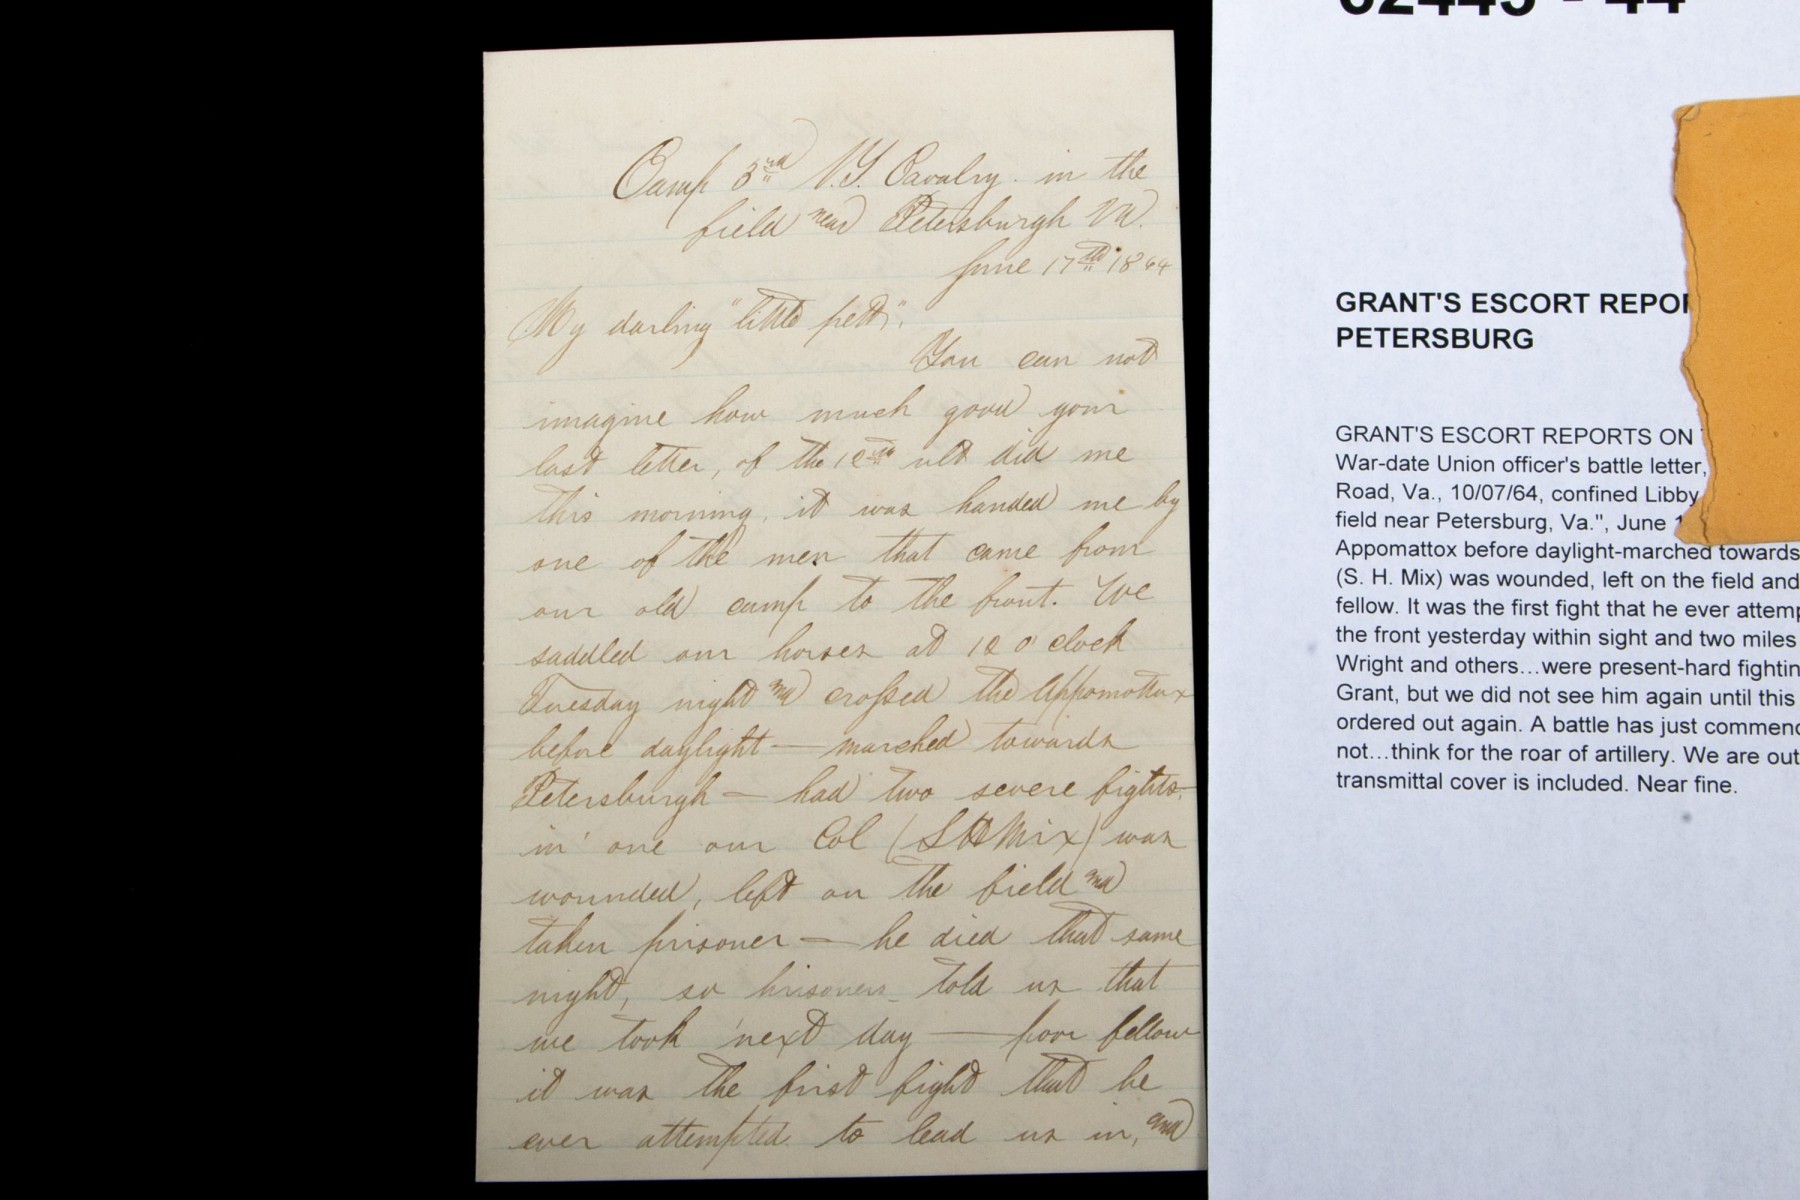 Camp 3rd N.Y. Cavalry. in the
field near Petersburgh Va.
June 17th 1864
My darling "little pett".
You can not
imagine how much good your
last letter, of the ult did me
this morning, it was handed me by
one of the men that came from
our old camp to the front. We
saddled our horses at 12 o'clock
Tuesday night and crossed the Appomattox
before daylight — marched towards
Petersburgh — had two severe fights.
in one our Col (S H Mix) was
wounded, left on the field and
taken prisoner — he died that same
night, so prisoners told us that
we took next day — poor fellow
it was the first fight that he
ever attempted to lead us in, and
02445 - 44
GRANT'S ESCORT REPOR
PETERSBURG
GRANT'S ESCORT REPORTS ON
War-date Union officer's battle letter,
Road, Va., 10/07/64, confined Libby
field near Petersburg, Va.", June 1
Appomattox before daylight-marched towards
(S. H. Mix) was wounded, left on the field and
fellow. It was the first fight that he ever attemp
the front yesterday within sight and two miles
Wright and others...were present-hard fightin
Grant, but we did not see him again until this
ordered out again. A battle has just commenc
not...think for the roar of artillery. We are out
transmittal cover is included. Near fine.